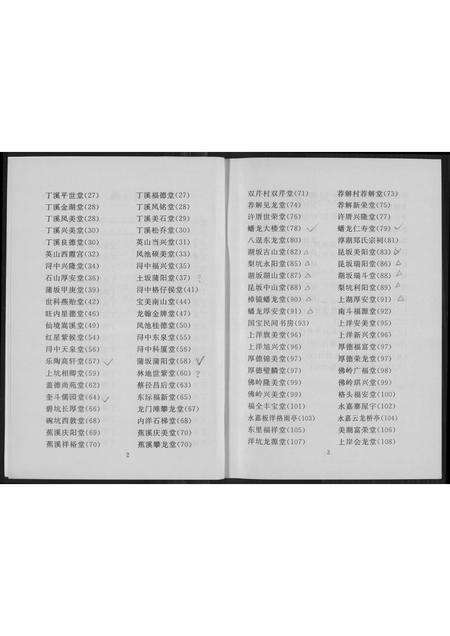 丁溪平世堂(27) 丁溪福德堂(27)
丁溪金湖堂(28) 丁溪凤铭堂(28)
丁溪凤美堂(28) 丁溪美石堂(29)
丁溪兴美堂(30) 丁溪松乔堂(30)
丁溪良德堂(30) 英山当兴堂(31)
英山西霞宫(32) 凤池硕美堂(33)
浔中兴隆堂(34) 浔中福兴堂(35)
石山厚安堂(36) 土坂蒲阳堂(37)
蒲坂甲庚堂(39) 浔中格仔侯堂(41)
世科燕贻堂(42) 宝美南山堂(44)
旺内星德堂(46) 龙翰金牌堂(47)
仙境嵩溪堂(49) 凤池桂德堂(50)
红星紫候堂(54) 浔中东泉堂(55)
浔中天泉堂(56) 浔中科厦堂(56)
乐陶高轩堂(57) 蒲坂蒲阳堂(58)
上坑相卿堂(59) 林地世紫堂(60)
盖德尚苑堂(62) 蔡径昌后堂(63)
奎斗儒园堂(64) 东坛福新堂(65)
碧坑长厚堂(66) 龙门滩攀龙堂(67)
碗坑西敦堂(68) 内洋石梯堂(68)
蕉溪庆阳堂(69) 蕉溪庆美堂(70)
蕉溪祥裕堂(70) 蕉溪攀龙堂(70)
2
双芹村双芹堂(71) 荐解村荐解堂(73)
荐解见龙堂(74) 荐解新荣堂(75)
许厝世荣堂(76) 许厝兴隆堂(77)
蟠龙大楼堂(78) 蟠龙仁寿堂(79)
八逞东龙堂(80) 厚湖郑氏宗祠(81)
湖坂古山堂(82) 昆坂美阳堂(83)
梨坑永阳堂(85) 昆坂瑞阳堂(86)
湖坂湖山堂(87) 湖坂瑞斗堂(88)
昆坂中山堂(88) 梨坑利阳堂(89)
樟镜蟠龙堂(90) 上湖厚安堂(91)
蟠龙厚安堂(91) 南斗福源堂(92)
国宝民间书房(93) 上洋安美堂(95)
上洋旗美堂(96) 上洋新兴堂(96)
上洋旭兴堂(96) 厚德福嘉堂(97)
厚德锦美堂(97) 厚德荣龙堂(97)
厚德璧麟堂(97) 佛岭广福堂(98)
佛岭隆美堂(99) 佛岭琪兴堂(99)
佛岭兴美堂(99) 格头福安堂(100)
福全丰宝堂(101) 永嘉寨屋宇(102)
永嘉板洋格南亭(103) 永嘉云龙桥亭(104)
东里福祥堂(105) 美湖富荣堂(106)
洋坑龙源堂(107) 上岸会龙堂(108)
3